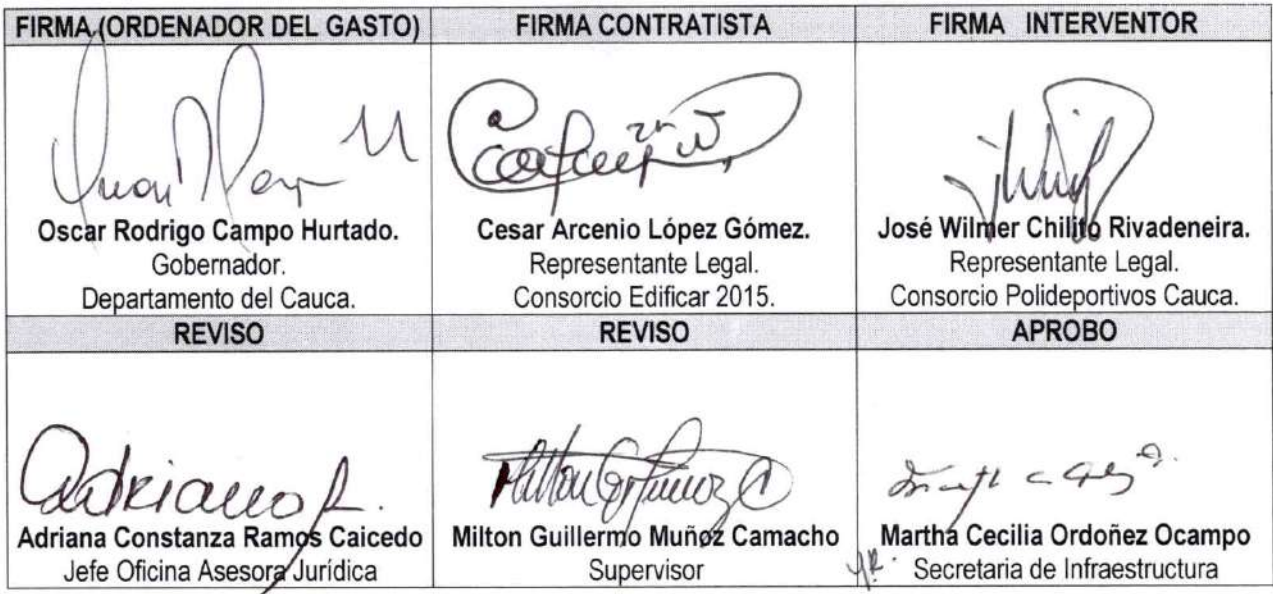 FIRMA (ORDENADOR DEL GASTO)
FIRMA CONTRATISTA
FIRMA INTERVENTOR
Oscar Rodrigo Campo Hurtado.
Gobernador.
Departamento del Cauca.
Cesar Arcenio López Gómez.
Representante Legal.
Consorcio Edificar 2015.
José Wilmer Chilito Rivadeneira.
Representante Legal.
Consorcio Polideportivos Cauca.
REVISO
REVISO
APROBO
Adriana Constanza Ramos Caicedo
Jefe Oficina Asesora Jurídica
Milton Guillermo Muñoz Camacho
Supervisor
Martha Cecilia Ordoñez Ocampo
Secretaria de Infraestructura